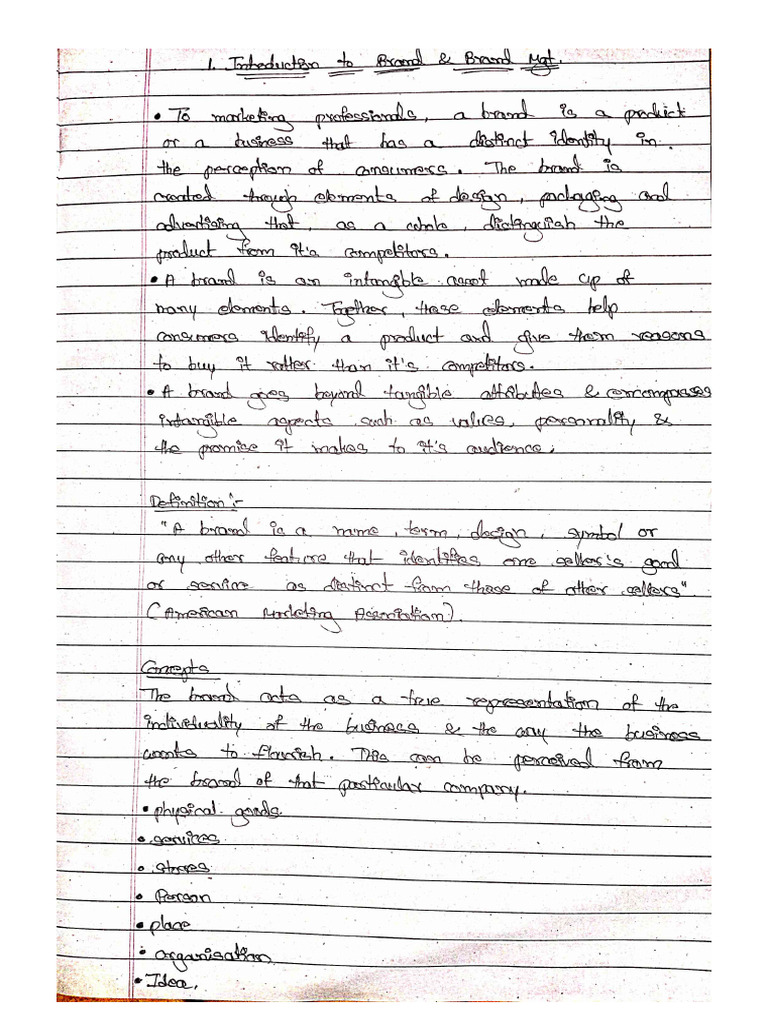 1. Introduction to Brand & Brand Mgt.
• To marketing professionals, a brand is a product
or a business that has a distinct identity in
the perception of consumers. The brand is
created through elements of design, packaging and
advertising that, as a whole, distinguish the
product from it's competitors.
• A brand is an intangible asset made up of
many elements. Together, these elements help
consumers identify a product and give them reasons
to buy it rather than it's competitors.
• A brand goes beyond tangible attributes & encompasses
intangible aspects such as values, personality &
the promise it makes to it's audience.
Definition :-
"A brand is a name, term, design, symbol or
any other feature that identifies one seller's good
or service as distinct from those of other sellers"
(American Marketing Association).
Concepts
The brand acts as a true representation of the
individuality of the business & the any the business
wants to flourish. This can be perceived from
the brand of that particular company.
• physical goods
• services
• stores
• Person
• place
• organisation
• Idea.